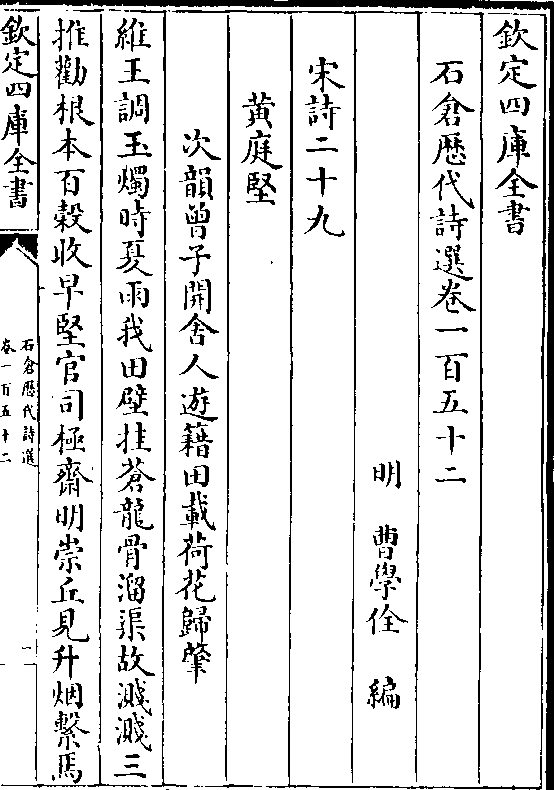 欽定四庫全書
石倉歷代詩選卷一百五十二
明 曹學佺 編
宋詩二十九
黃庭堅
次韻曾子開舍人遊籍田載荷花歸肇
維王調玉燭時夏雨我田壁挂蒼龍骨溜渠故濺濺三
推勸根本百穀收早堅官司極齋明崇丘見升烟繫馬
欽定四庫全書
石倉歷代詩選
卷一百五十二
一